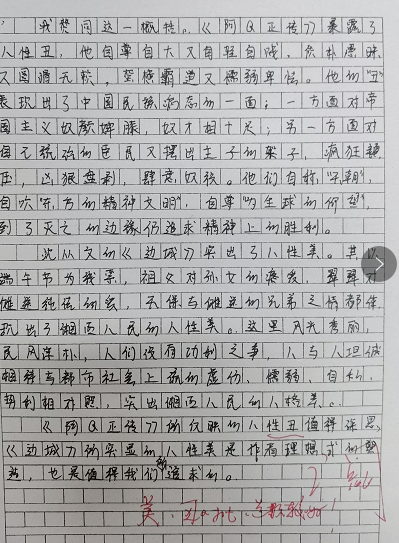 我赞同这一概括。《阿Q正传》暴露了
人性丑，他自尊自大又自轻自贱，质朴愚昧
又圆滑无赖，蛮横霸道又懦弱卑怯。他的“丑”
表现出了中国民族病态的一面：一方面对帝
国主义奴颜婢膝，奴才相十足；另一方面对
自己统治的臣民又摆出主子的架子，疯狂镇
压，凶狠盘剥，肆意奴役。他们自称“天朝”，
自欺“东方的精神文明”，自尊为“生球的何
到了灭亡的边缘仍追求精神上的胜利。
沈从文的《边城》突出了人性美。其以
端午节为我景，祖父对孙女的疼爱，翠翠对
傩送纯洁的爱，天保与傩送的兄弟之情都体
现出了湘西人民的人性美。这里风光秀丽，
民风淳朴，人们没有功利之争，人与人坦诚
相待与都市社会上流的虚伪、懦弱、自私、
势利相对照，突出湘西人民的人格美。
《阿Q正传》的反映的人性丑值得深思，
《边城》的突显的人性美是作者理想
也是值得我们所追求的。